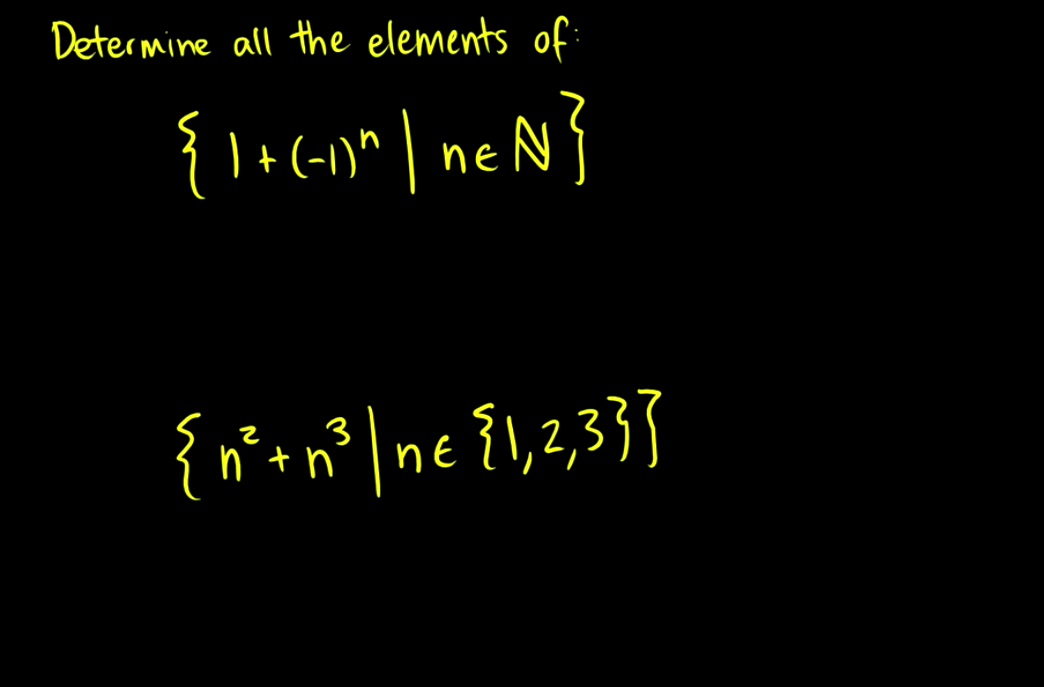 Determine all the elements of:
{ 1 + (-1)ⁿ | n ∈ ℕ }
{ n² + n³ | n ∈ {1,2,3}}